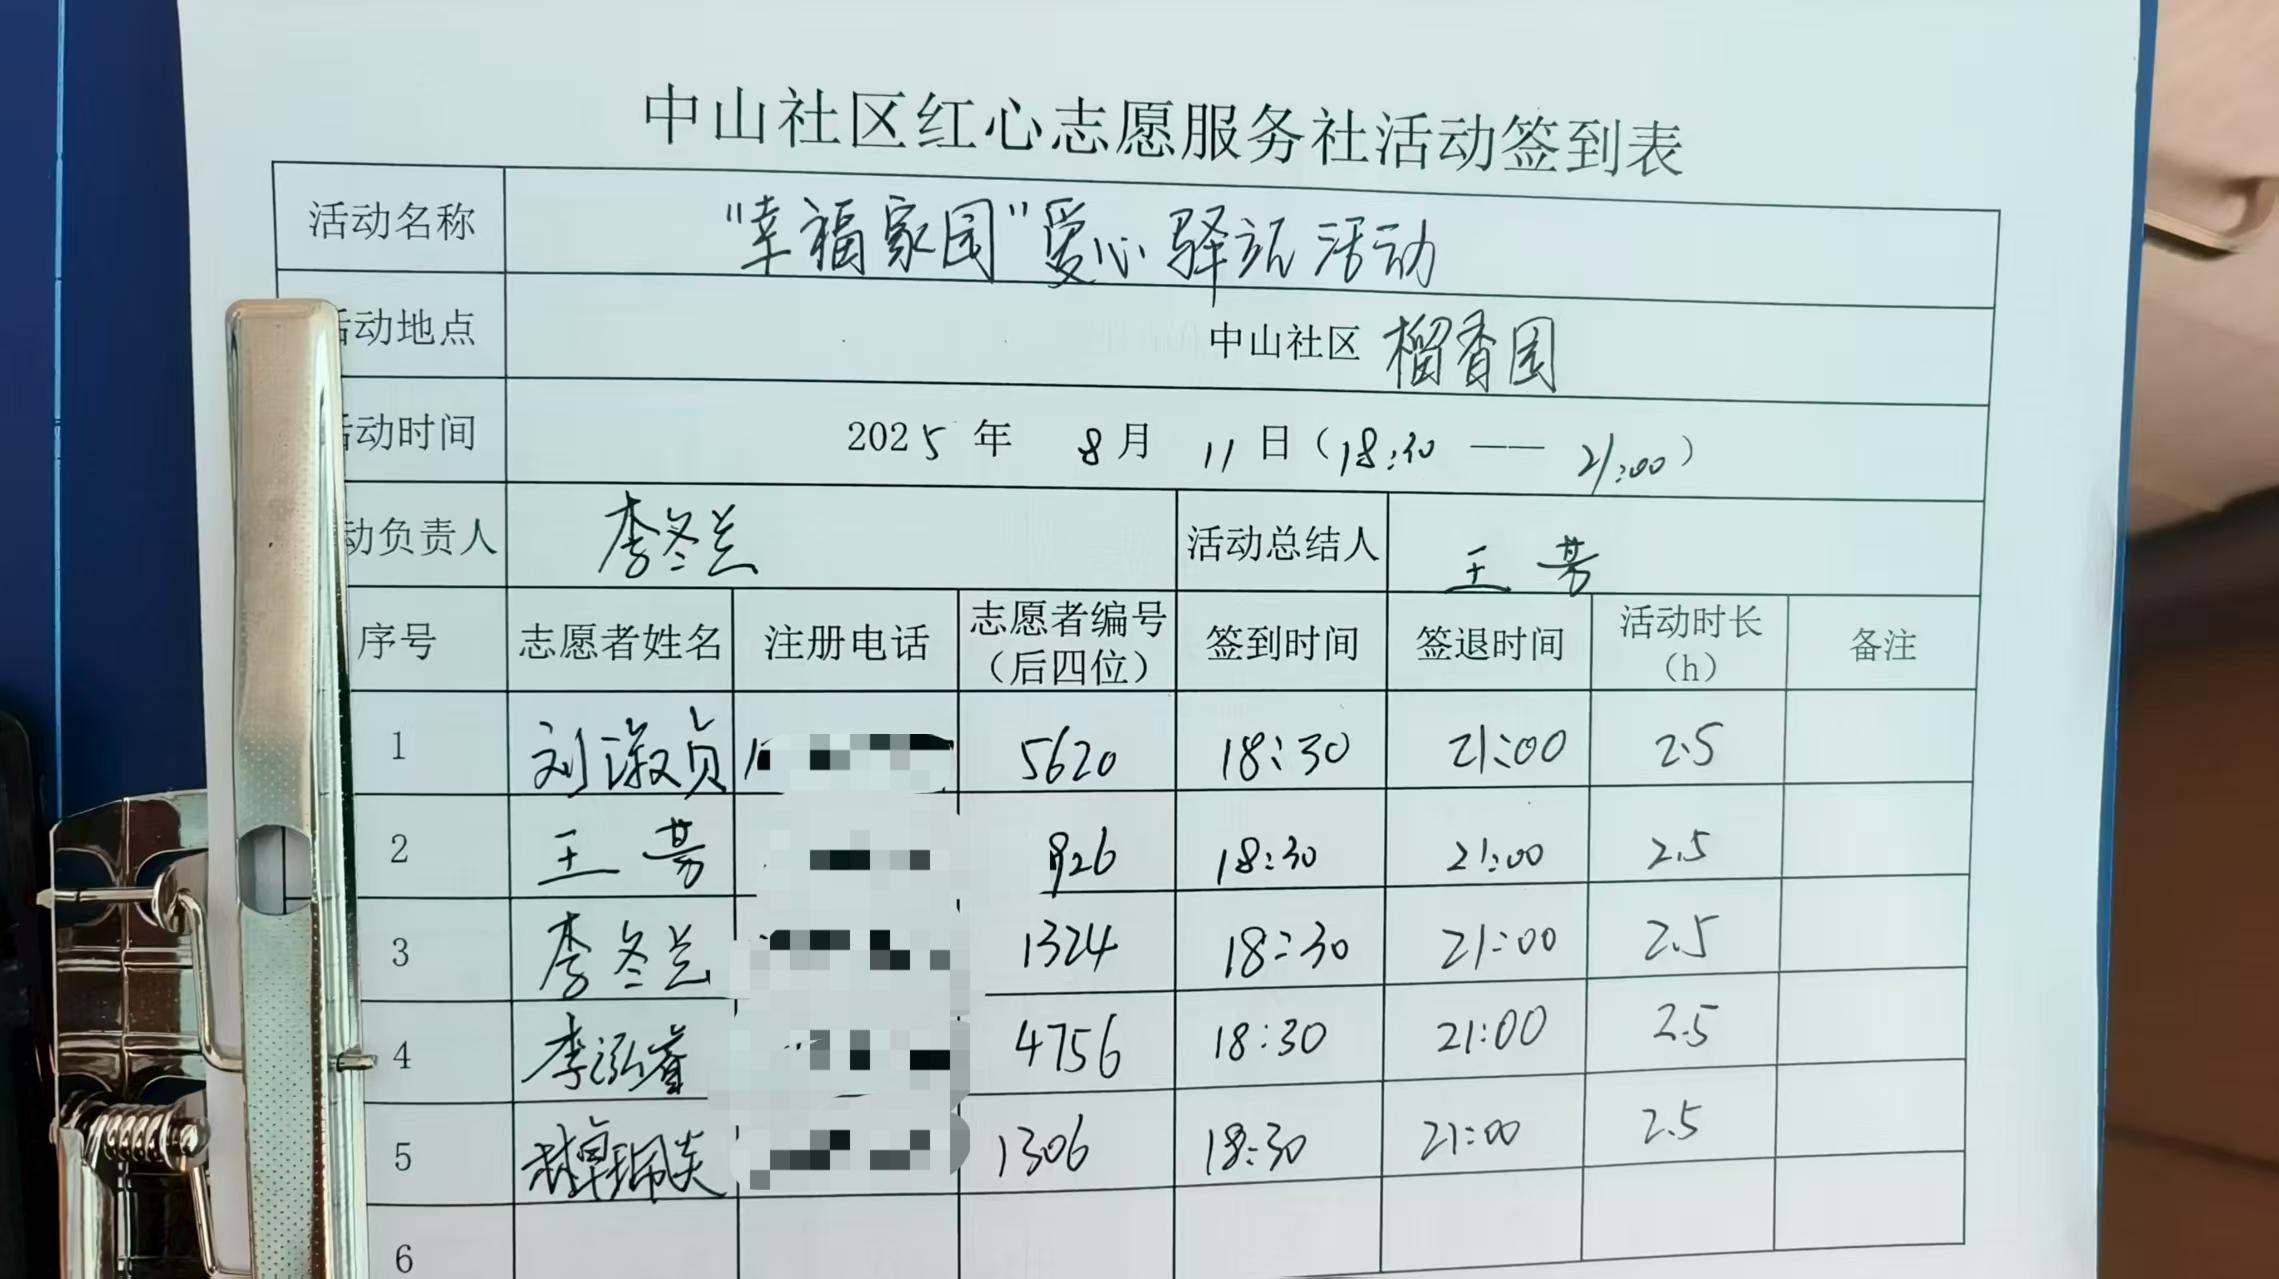 中山社区红心志愿服务社活动签到表
活动名称 "幸福家园"爱心驿站活动
活动地点 中山社区 榴香园
活动时间 2025 年 8 月 11 日(18:30 —— 21:00)
动负责人 李冬兰 活动总结人 王芳
序号 志愿者姓名 注册电话 志愿者编号(后四位) 签到时间 签退时间 活动时长(h) 备注
1 刘淑贞 5620 18:30 21:00 2.5
2 王芳 926 18:30 21:00 2.5
3 李冬兰 1324 18:30 21:00 2.5
4 李泓睿 4756 18:30 21:00 2.5
5 1306 18:30 21:00 2.5
6